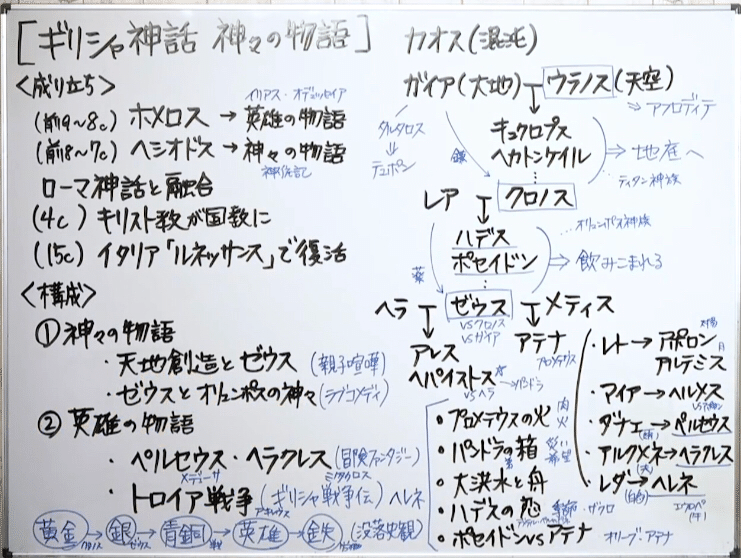 [ギリシャ神話 神々の物語]
<成り立ち>
イリアス・オデュッセイア
(前9〜8c) ホメロス → 英雄の物語
(前8〜7c) ヘシオドス → 神々の物語
神統記
ローマ神話と融合
(4c) キリスト教が国教に
(15c) イタリア「ルネッサンス」で復活
<構成>
① 神々の物語
・天地創造とゼウス (親子喧嘩)
・ゼウスとオリュンポスの神々 (ラブコメディ)
② 英雄の物語
・ペルセウス・ヘラクレス (冒険ファンタジー)
メデューサ
・トロイア戦争 (ギリシャ戦争伝) ヘレネ
アキレウス
黄金 → 銀 → 青銅 → 英雄 → 鉄 (没落史観)
クロノス ゼウス
カオス (混沌)
ガイア (大地) ウラノス (天空)
⇒ アフロディテ
タルタロス
⇓
テュポン
キュクロプス
ヘカトンケイル
⇒ 地底へ
ティタン神族
レア クロノス
オリュンポス神族
ハデス
ポセイドン
⇒ 飲みこまれる
薬
ヘラ ゼウス メティス
VSクロノス
VSガイア
アレス
ヘパイストス
VSヘラ
→パンドラ
アテナ
・レト → アポロン
アルテミス
太陽
月
・マイア → ヘルメス
・ダナエ → ペルセウス
・アルクメネ → ヘラクレス
(夫)
・レダ → ヘレネ
(白鳥)
エウロペ
(牛)
・プロメテウスの火
肉
火
・パンドラの箱
災い
希望
・大洪水と舟
・ハデスの恋
季節・ザクロ
・ポセイドンVSアテナ
オリーブ・アテナ